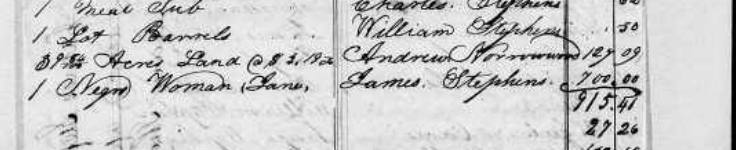 1 Meat Tub Charles Stephens
1 Lot Barrels William Stephens .50
Acres Land @ $ Andrew 127 09
1 Negro Woman, Jane, James. Stephens. 700,00
915.41
27 26